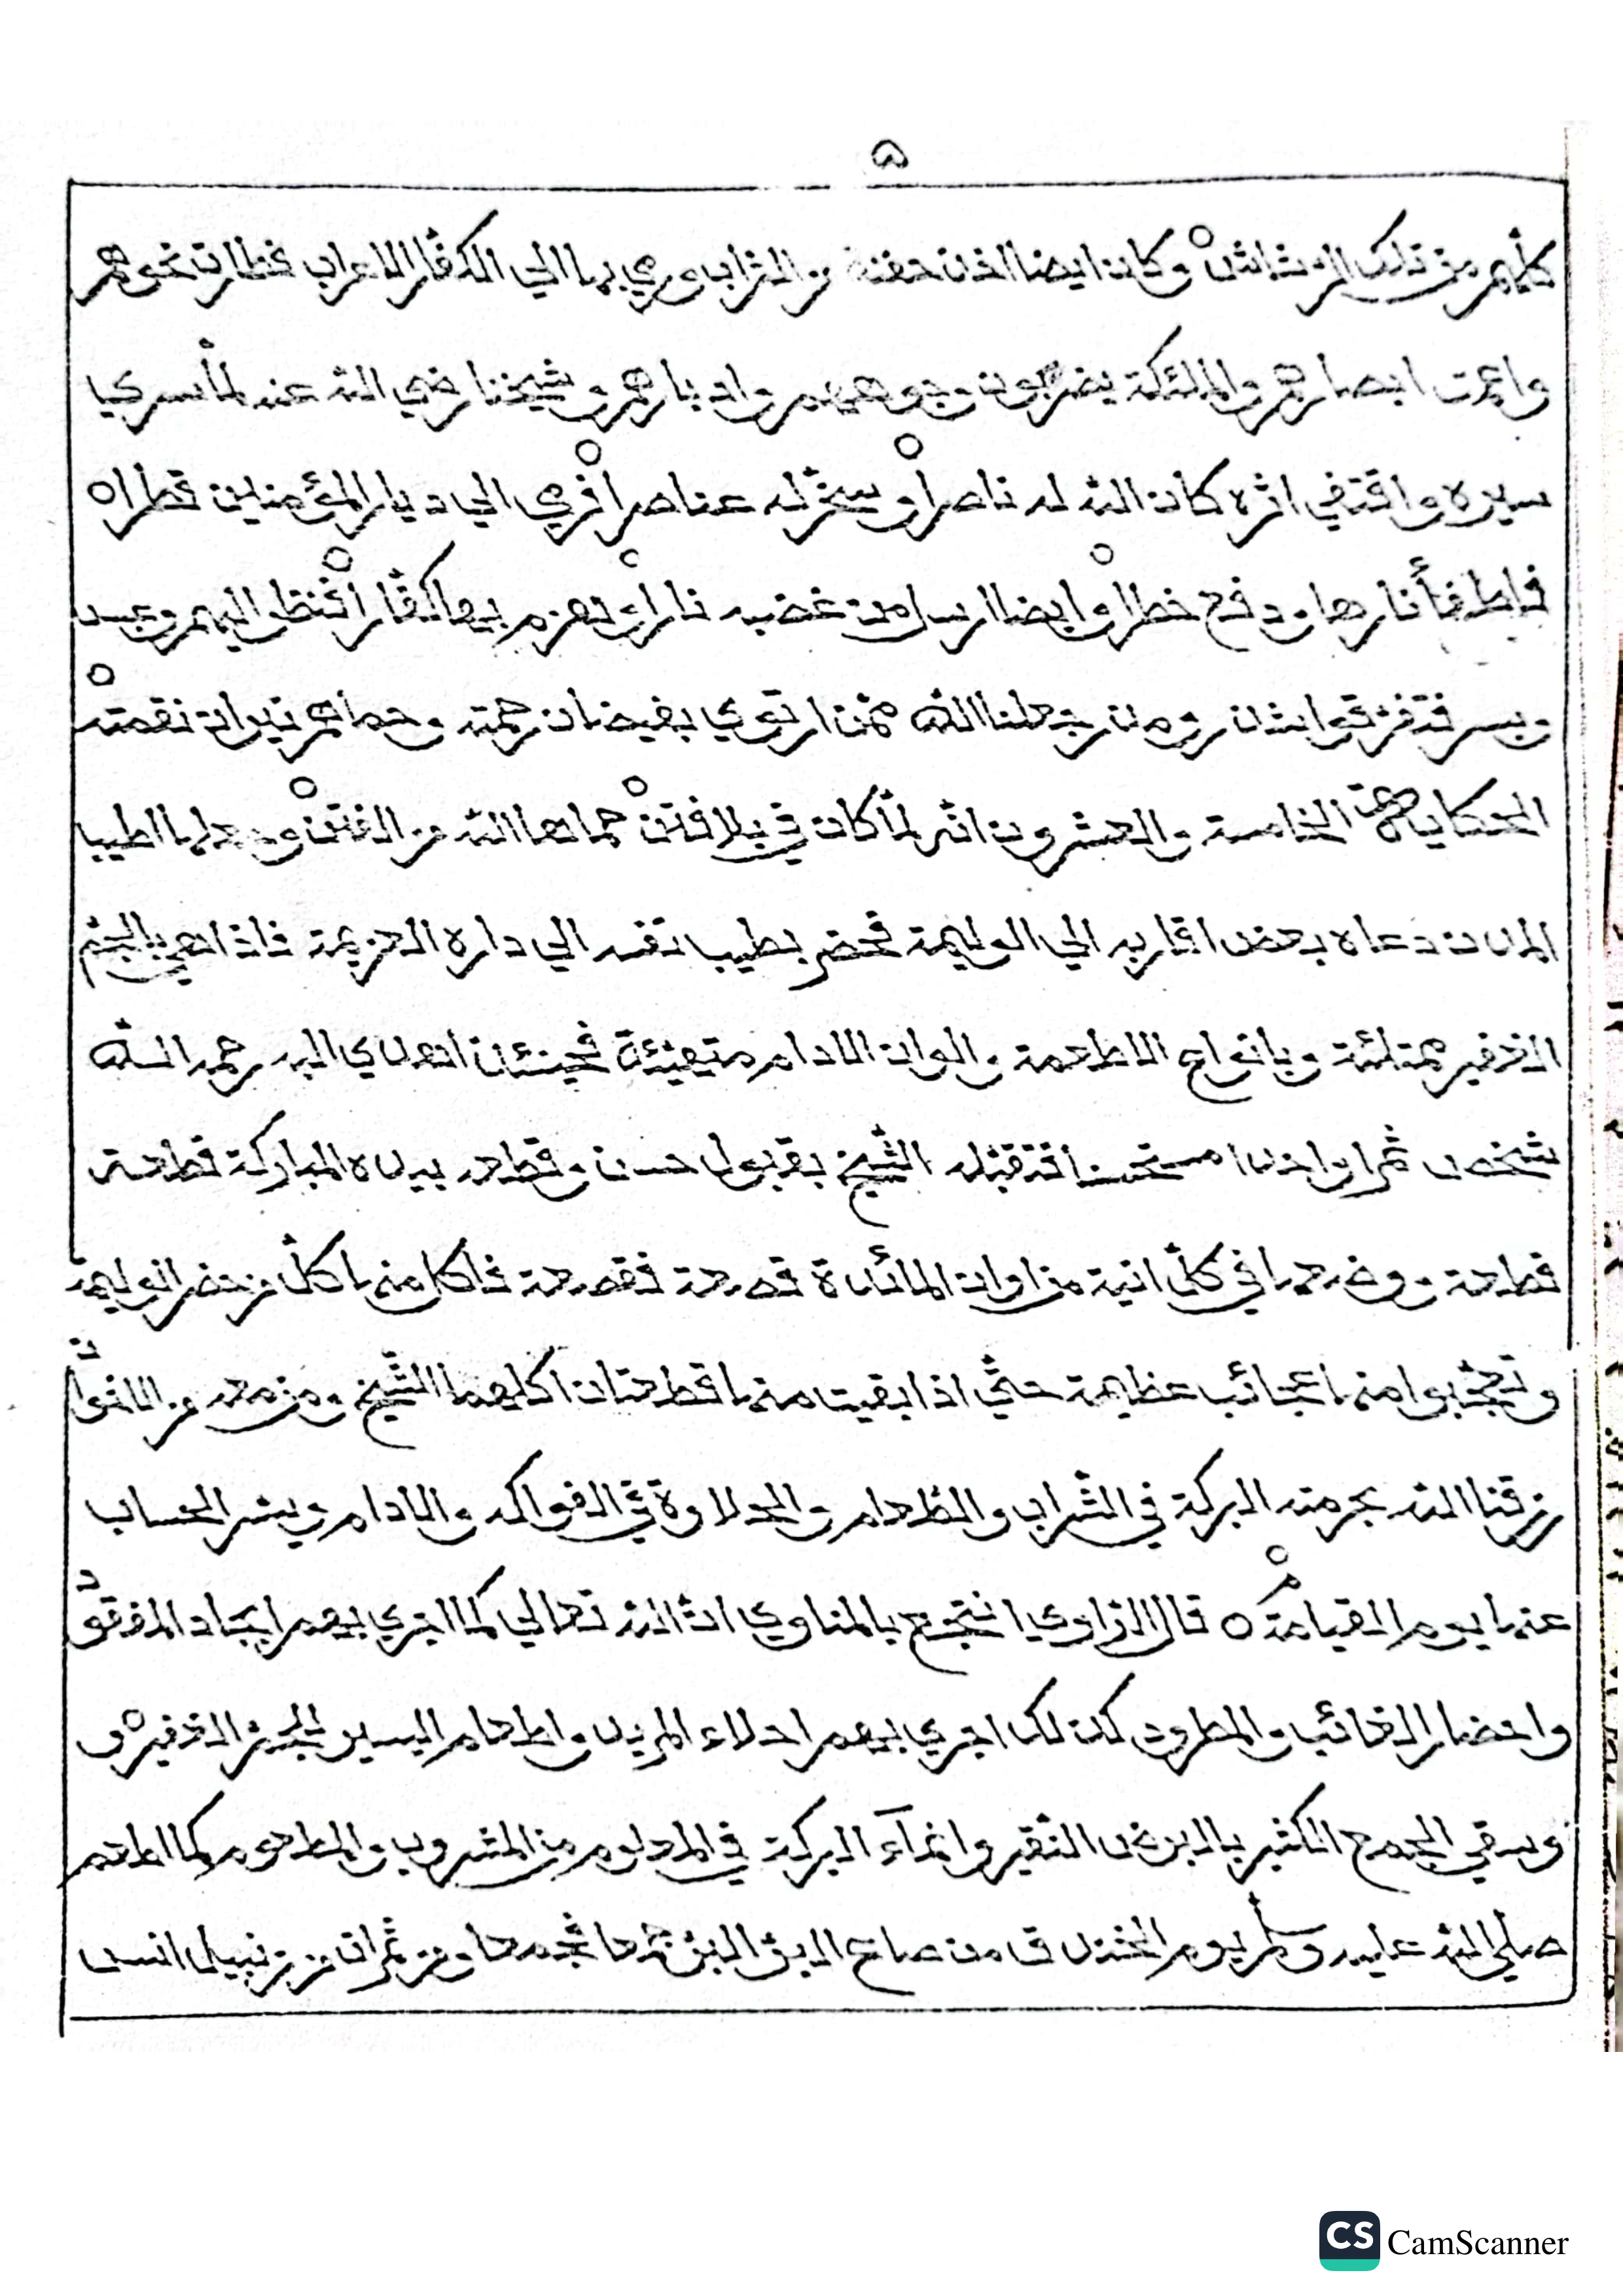 ٥
كلهم من تلك الرشاش وكان ايضا اخذ حفنة من التراب ورمي بها الي الكفار الاعراب فطارت نحوهم
واعمت ابصارهم والملئكة يضربون وجوههم وادبارهم وشيخنا رضي الله عنه لما سري
سيره واقتفي اثره كان الله له ناصرا وسخر له عناصرا فرمي الي ديار المؤمنين قطراه
فاطفأ نارها ودفع خطرا وايضا ارسل من غضبه نارا وتهزم بها كفارا فنظر اليهم وعبس
وبسر فتفرقوا شذر ومذر جعلنا الله ممن ارتوي بفيضان رحمته وحماهم نيران نقمته
الحكاية الخامسة والعشرون انه لما كان في بلافتن حماها الله من الفتن وجعلها اطيب
المدن دعاه بعض اقاربه الي الوليمة فحضر بطيب نفسه الي داره العزيمة فاذا هي بالجم
الغفير ممتلئة وبانواع الاطعمة والوان الادام متهيئة فحينئذ اهدي اليه رحمه الله
شخص ثمرا واحدا مستحسنا فتقبله الشيخ بقبول حسن وقطعه بيده المباركة قطعة
قطعة ووضعها في كل انية من اوان المائدة قصعة فقصعة فاكل منها كل من حضر الوليمة
وتعجبوا منها عجائب عظيمة حتي اذا بقيت منها قطعتان اكلهما الشيخ ومن معه من الاخوان
رزقنا الله بحرمته البركة في الشراب والطعام والحلاوة في الفواكه والادام ويسر الحساب
عنها يوم القيامة ه قال الراوي انتجع بالمناوي ان الله تعالي كما اجري بهم ايجاد المفقود
واحضار الغائب والمطرود كذلك اجري بهم احلاء المر واطعام اليسير الجم الغفير و
وسقي الجمع الكثير بالبرض النقير وانماء البركة في المعلوم من المشروب والمطعوم كما اطعم
صلي الله عليه وسلم يوم الخندق من صاع البر البر جمعا ومن ثمرات من زنبيل انس
CS CamScanner